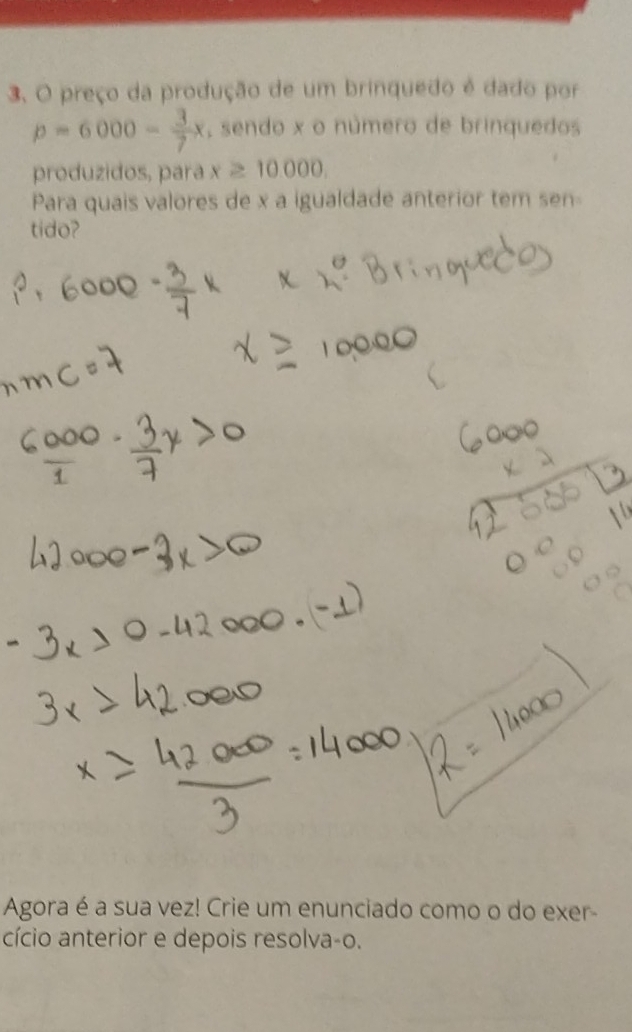 3. O preço da produção de um brinquedo é dado por
p = 6 000 − 3/7 x, sendo x o número de brinquedos
produzidos, para x ≥ 10 000.
Para quais valores de x a igualdade anterior tem sen-
tido?
P. 6000 - 3/7 x x nº Brinquedos
mmc=7 x ≥ 10.000
6000/1 - 3/7 x > 0 6000
x 7
42000 - 3x > 0 42000 3
- 3x > 0 - 42 000 . (-1)
3x > 42.000
x ≥ 42 000/3 = 14000 R = 14000
Agora é a sua vez! Crie um enunciado como o do exer-
cício anterior e depois resolva-o.